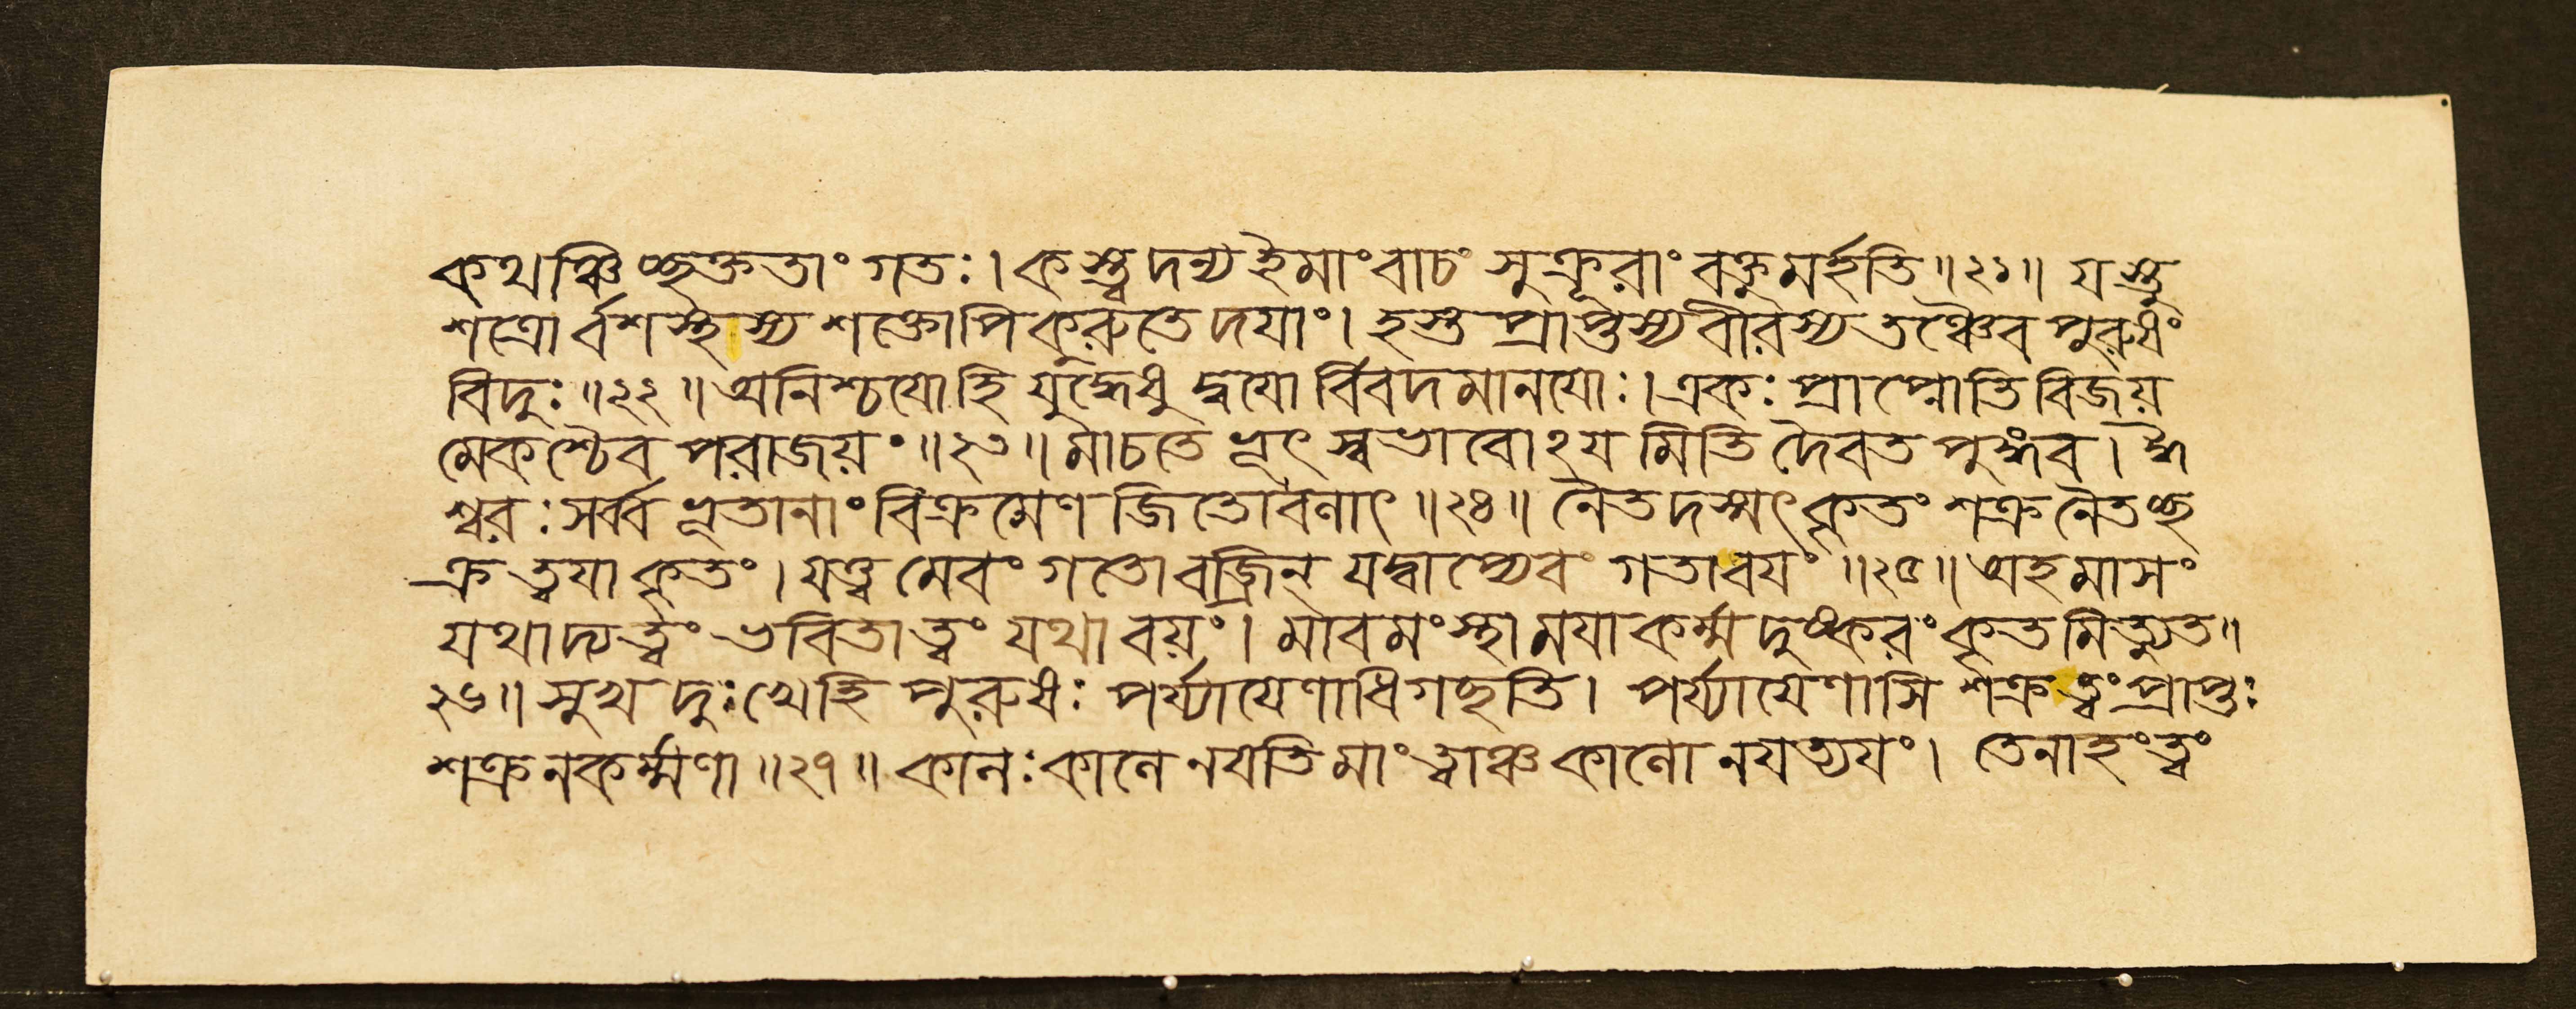 কথঞ্চিচ্ছক্ততাং গতঃ। কস্ত্বদন্য ইমাং বাচং সুক্রূরাং বক্তুমর্হতি॥২১॥ যস্তু
শত্রোর্বশস্থস্য শক্তোপি কুরুতে দয়াং। হস্তপ্রাপ্তস্য বীরস্য তঞ্চৈব পুরুষং
বিদুঃ॥২২॥ অনিশ্চয়োহি যুদ্ধেষু দ্বয়োর্বিবদমানয়োঃ। একঃ প্রাপ্নোতি বিজয়
মেকশ্চৈব পরাজয়ং॥২৩॥ মাচতে ভূৎ স্বভাবোঽয় মিতি দৈবত পুঙ্গব। ঈ
শ্বরঃ সর্ব্ব ভূতানাং বিক্রমেণ জিতোবলাৎ॥২৪॥ নৈতদস্মৎ কৃতং শক্র নৈতচ্ছ
ক্র ত্বয়া কৃতং। যত্ত্বমেবং গতো বজ্রিন্ যদ্বাপ্যেবং গতাবয়ং॥২৫॥ অহমাসং
যথাদ্যত্বং ভবিতাত্বং যথা বয়ং। মাবমংস্থা ময়া কর্ম্ম দুষ্করং কৃতমিত্যুত॥
২৬॥ সুখ দুঃখেহি পুরুষঃ পর্য্যায়েণাধিগচ্ছতি। পর্য্যায়েণাসি শক্রত্বং প্রাপ্তঃ
শক্র নকর্ম্মণা॥২৭॥ কালঃ কালে নয়তি মাং ত্বাঞ্চ কালো নয়ত্যয়ং। তেনাহং ত্বং